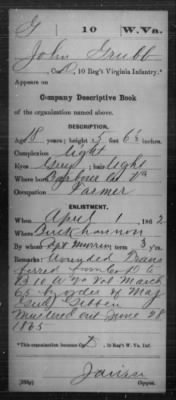 G 10 W. Va.
John Grubb
, Co. D, 10 Reg't Virginia Infantry.*
Appears on
Company Descriptive Book
of the organization named above.
DESCRIPTION.
Age 18 years; height 5 feet 6½ inches.
Complexion light
Eyes Grey; hair light
Where born Barbour Co Va
Occupation Farmer
ENLISTMENT.
When April 1, 1862
Where Buckhannon
By whom Capt Morrison term 3 y'rs.
Remarks: Wounded Trans
ferred from Co D to
B 10 W Va Vol March
65 by order of Maj
Genl Gibbon
Mustered out June 28
1865
*This organization became Co. , 10 Reg't W. Va. Inf.
Copyist.